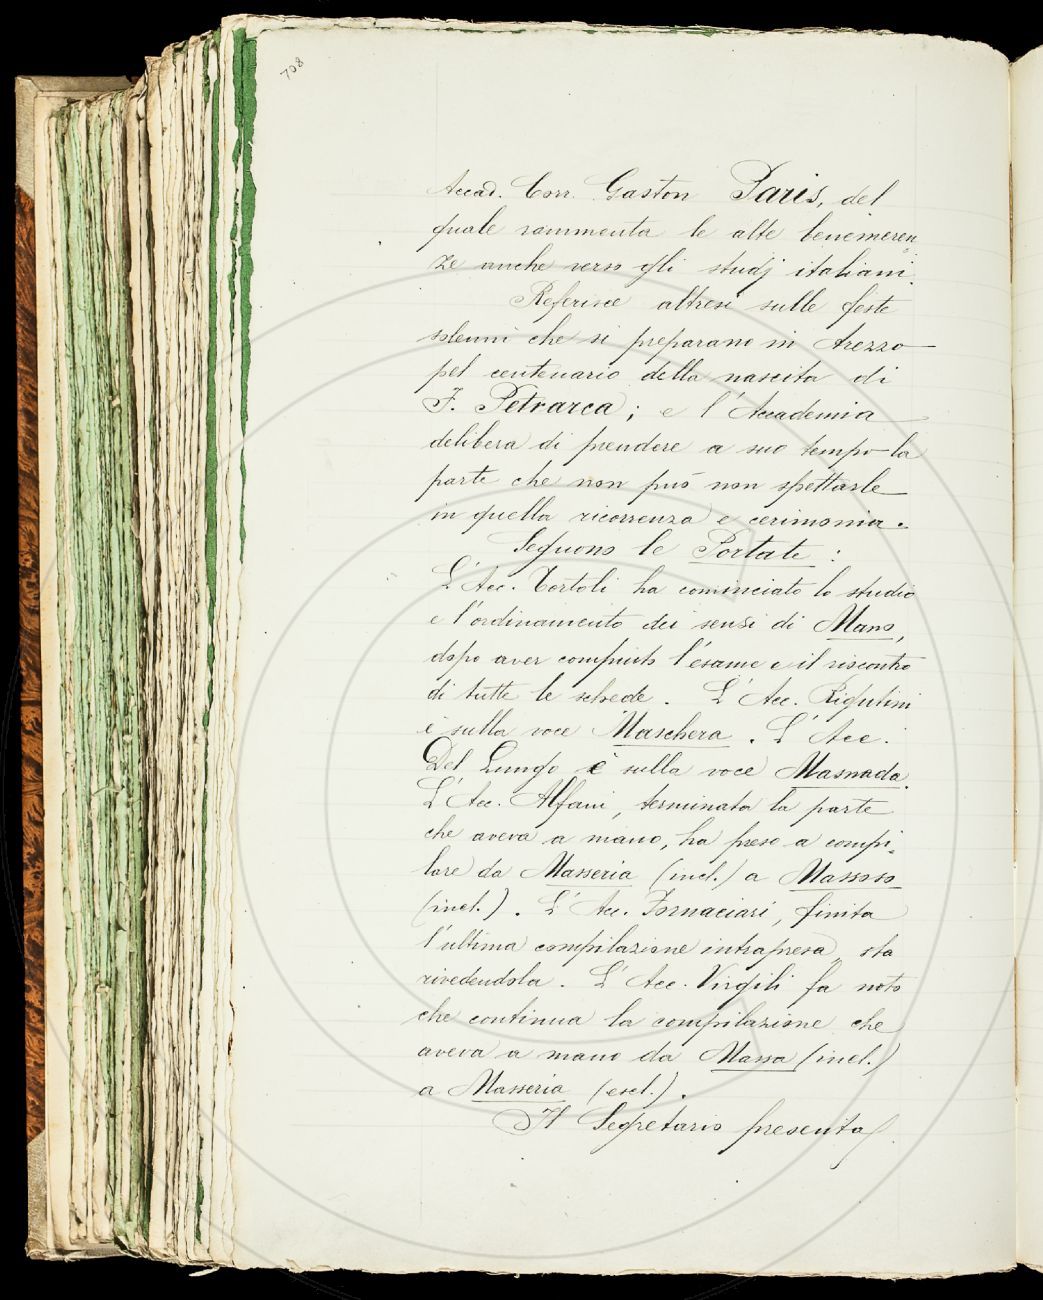 708
Accad. Corr. Gaston Paris, del
quale rammenta le alte benemeren-
ze anche verso gli studj italiani.
Referisce altresì sulle feste
solenni che si preparano in Arezzo
pel centenario della nascita di
F. Petrarca; e l'Accademia
delibera di prendere a suo tempo la
parte che non può non spettarle
in quella ricorrenza e cerimonia.
Seguono le Portate:
L'Acc. Tortoli ha cominciato lo studio
e l'ordinamento dei sensi di Mano,
dopo aver compiuto l'esame e il riscontro
di tutte le schede. L'Acc. Rigutini
è sulla voce Maschera. L'Acc.
Del Lungo è sulla voce Masnada.
L'Acc. Alfani, terminata la parte
che aveva a mano, ha preso a compi-
lare da Masseria (incl.) a Massoso
(incl.). L'Acc. Fornaciari, finita
l'ultima compilazione intrapresa, sta
rivedendola. L'Acc. Virgili fa noto
che continua la compilazione che
aveva a mano da Massa (incl.)
a Masseria (escl.).
Il Segretario presenta